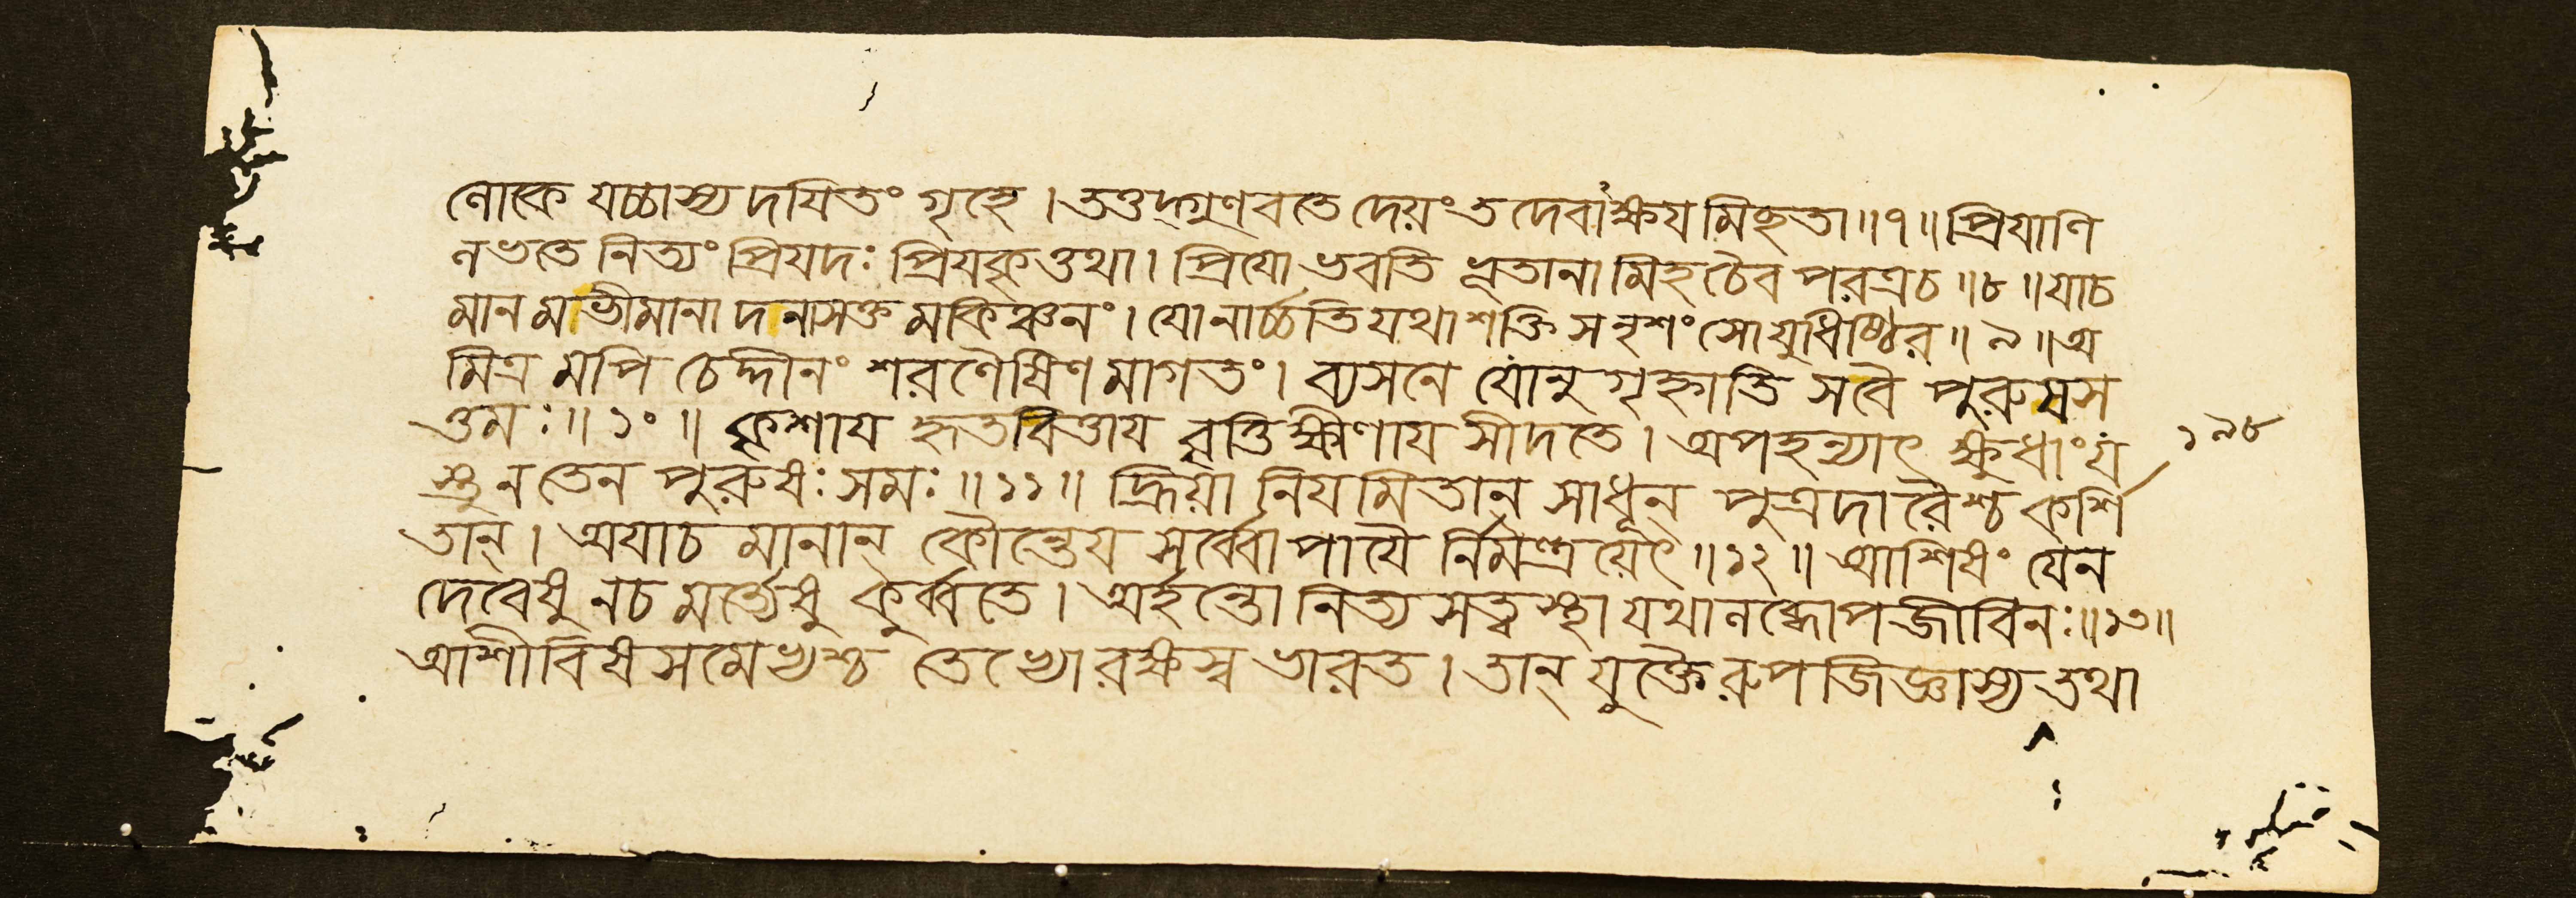 লোকে যচ্চাস্য দযিতং গৃহে । তত্তদ্গুণবতে দেয়ং তদেবাক্ষযমিছতা ॥ ৭ ॥ প্রিযাণি
লভতে নিত্যং প্রিযদঃ প্রিযকৃত্তথা । প্রিযো ভবতি ভূতানামিহ চৈব পরত্র চ ॥ ৮ ॥ যাচ
মানমভীমানাদনাসক্তমকিঞ্চনং । যো নার্চ্চতি যথাশক্তি স নৃশংসো যুধিষ্ঠির ॥ ৯ ॥ অ
মিত্রমপি চেদ্দীনং শরণৈষিণমাগতং । ব্যসনে যোনুগৃহ্নাতি স বৈ পুরুষস
ত্তমঃ ॥ ১০ ॥ কৃশায হৃতবিত্তায বৃত্তিক্ষীণায সীদতে । অপহন্যাৎ ক্ষুধাং য
১৯৮
স্তু ন তেন পুরুষঃ সমঃ ॥ ১১ ॥ হ্রিয়া নিযমিতান্ সাধূন্ পুত্রদারৈশ্চ কর্শি
তান্ । অযাচমানান্ কৌন্তেয সর্ব্বোপাযৈর্নিমন্ত্রয়েৎ ॥ ১২ ॥ আশিষং যে ন
দেবেষু ন চ মর্ত্ত্যেষু কুর্ব্বতে । অর্হন্তো নিত্যসত্ত্বস্থা যথালব্ধোপজীবিনঃ ॥ ১৩ ॥
আশীবিষসমেভ্যশ্চ তেভ্যো রক্ষস্ব ভারত । তান্ যুক্তৈরুপজিজ্ঞাস্য তথা